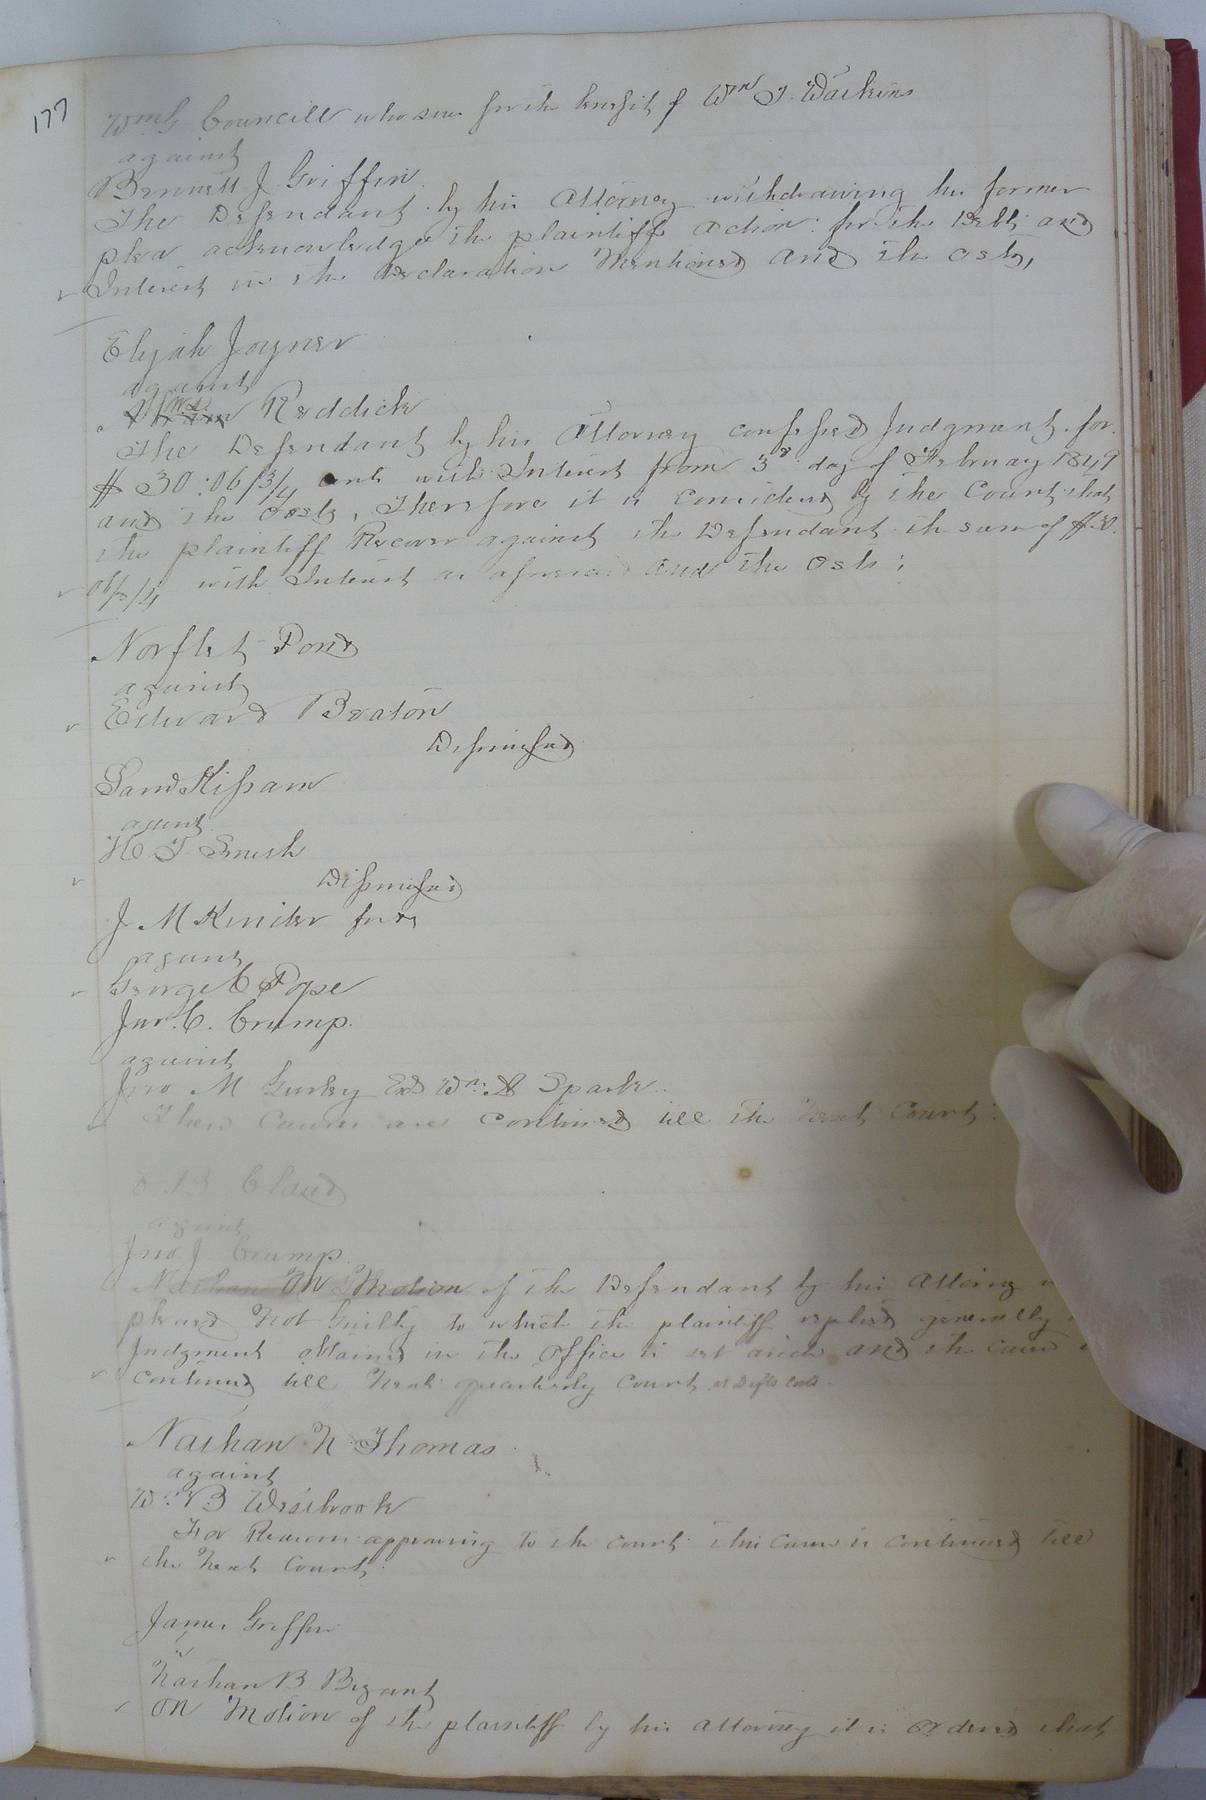 177
Wm G Councill who sues for the benefit of Wm J. Watkins
against
Bennett J Griffin
The Defendant by his Attorney withdrawing his former
plea acknowledges the plaintiffs action for the Debt and
Interest in the Declaration Mentioned and the Costs,
Elijah Joyner
against
Reddick
The Defendant by his Attorney confessed Judgment for
$ 30:06/3/4 with Interest from 3d day of February 1849
and the Costs, Therefore it is Considered by the Court that
the plaintiff Recover against the Defendant the sum of $30.
06/3/4 with Interest as aforesaid and the Costs;
Norflet Pond
against
Edward Beaton
Dismissed
Sam Kissam
against
H T Smith
Dismissed
J. M Kinder
against
George C Pope
Jno. C. Crump.
against
Jno M Gurley Wm. Spark
These Causes are continued till the Next Court
B Claud
against
Jno J Crump
On Motion of the Defendant by his Attorney
pleaded Not Guilty to which the plaintiff replied generally
Judgment obtained in the Office is set aside and the cause
continued till Next quarterly Court at Defts Costs
Nathan N Thomas
against
Wm. B Westbrook
For Reasons appearing to the court this Cause is continued till
the Next Court.
James Griffin
v
Nathan B Bryant
On Motion of the plaintiff by his attorney it is Ordered that